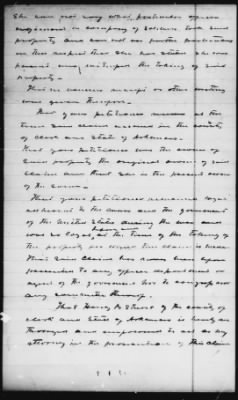 She can not say what particular officer
regiment or company of soldiers took said
property and can not give further particulars
in this respect than she has stated she was
present and witnessed the taking of said
property.
That no voucher receipt or other writing
was given therefor.
That your petitioner resided at the
time said claim accrued in the county
of Clark and State of Arkansas.
that your petitioner was the owner of
said property the original owner of said
claim and that she is the present owner
of the same.
That your petitioner remained loyal
adherent to the cause and the government
of the United States during the war and
was so loyal before and at the time of the taking of
the property for which this claim is made.
That said claim has never been
presented to any officer department or
agent of the government nor to congress or
any committee thereof.
That Henry B. of the county of
Clark and State of Arkansas is hereby
authorized and empowered to act as my
attorney in the prosecution of this claim